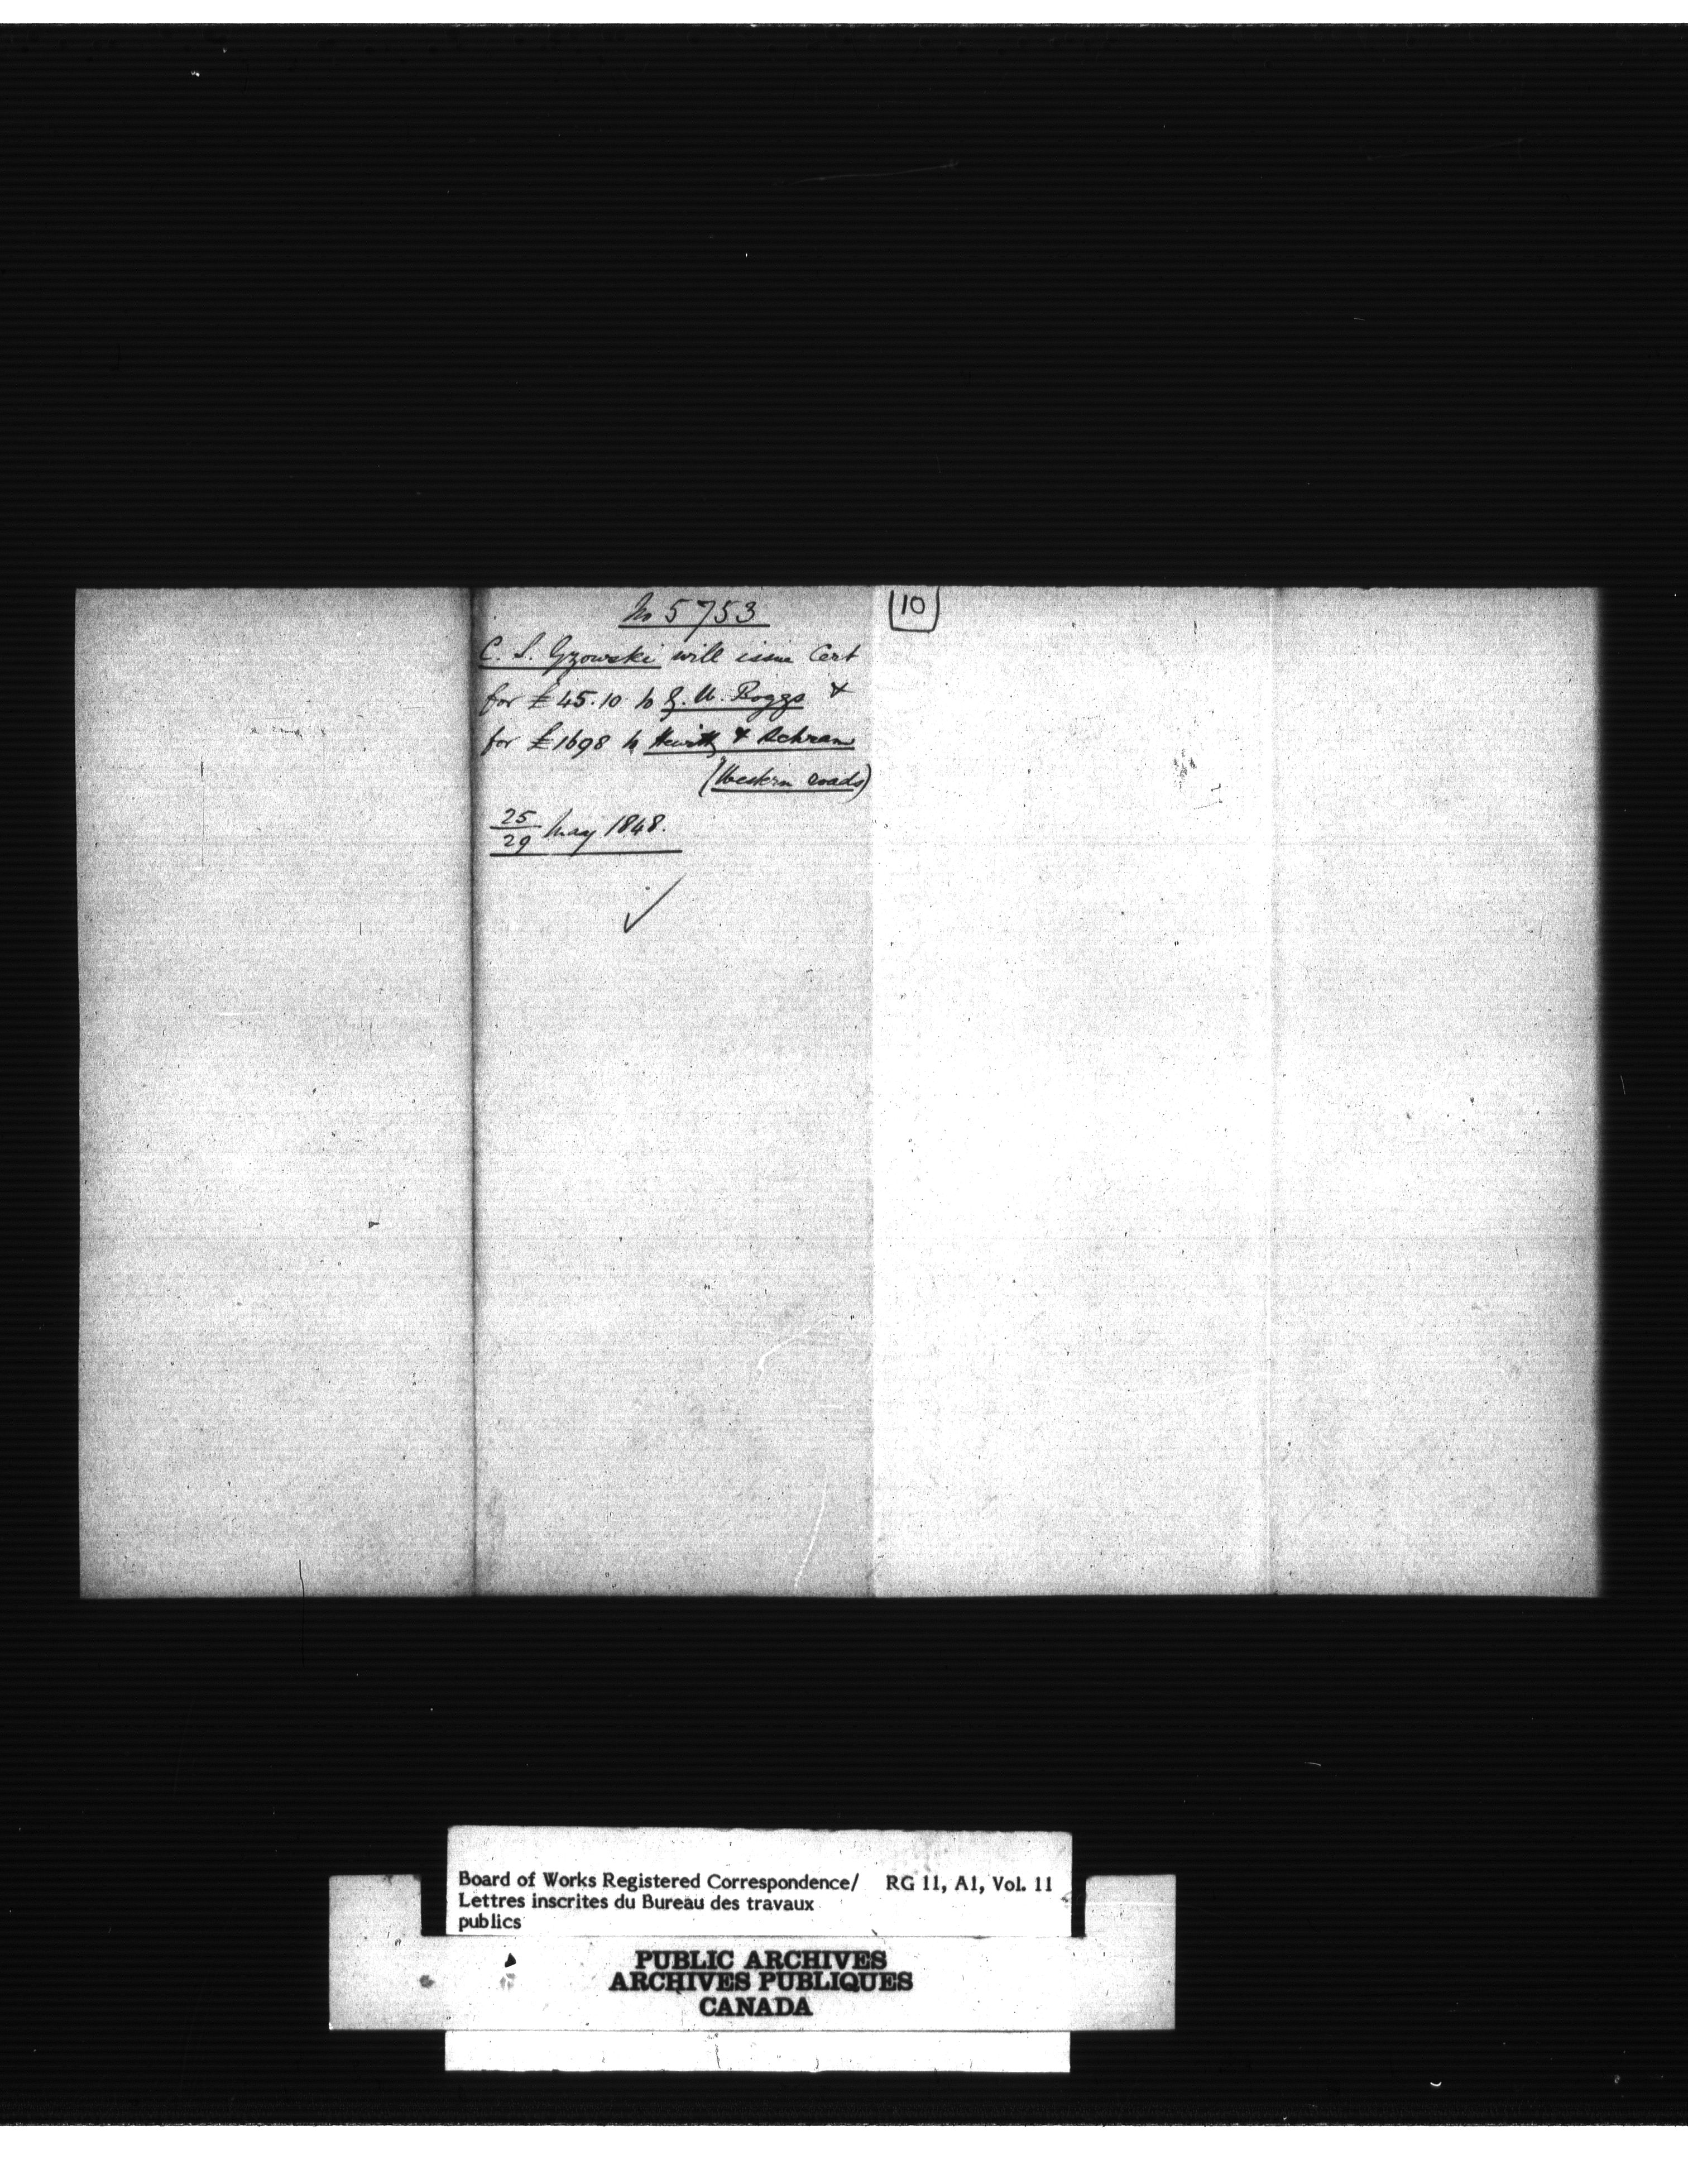 No 5753
C. S. Gzowski will issue Cert
for £45.10 to G. W. Boggs &
for £1698 to Hewitt & Schram
(Western roads)
25/29 May 1848.
✓
[10]
Board of Works Registered Correspondence/ RG 11, A1, Vol. 11
Lettres inscrites du Bureau des travaux
publics
PUBLIC ARCHIVES
ARCHIVES PUBLIQUES
CANADA